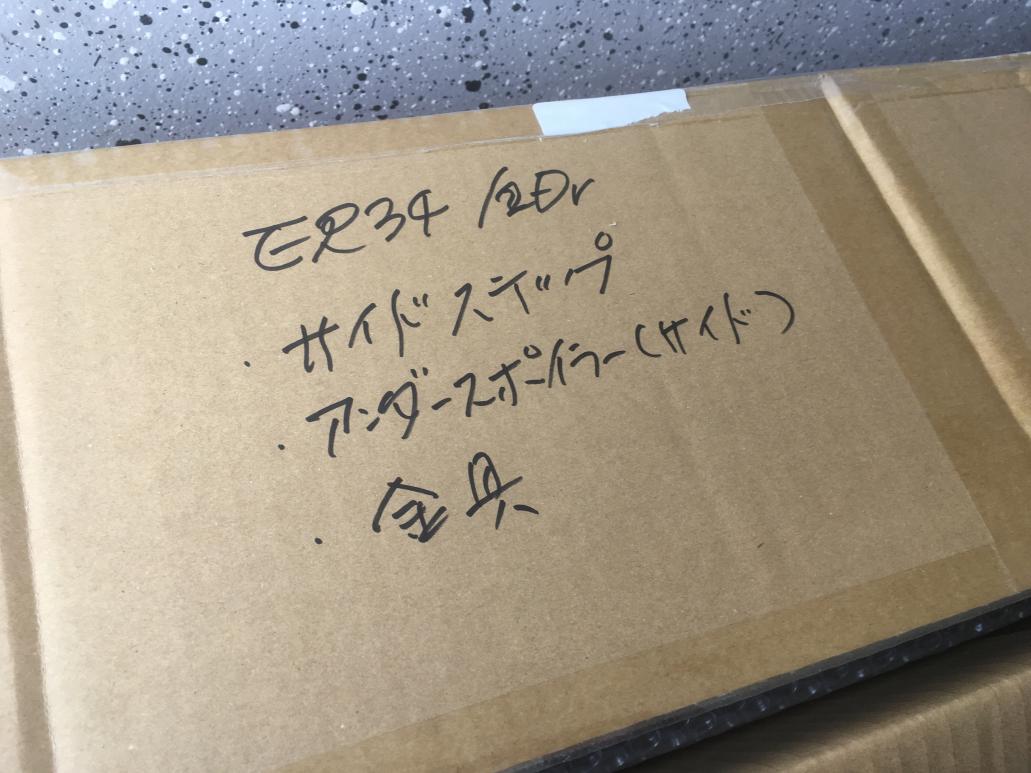 ER34 2Dr
・サイドステップ
・アンダースポイラー(サイド)
・金具